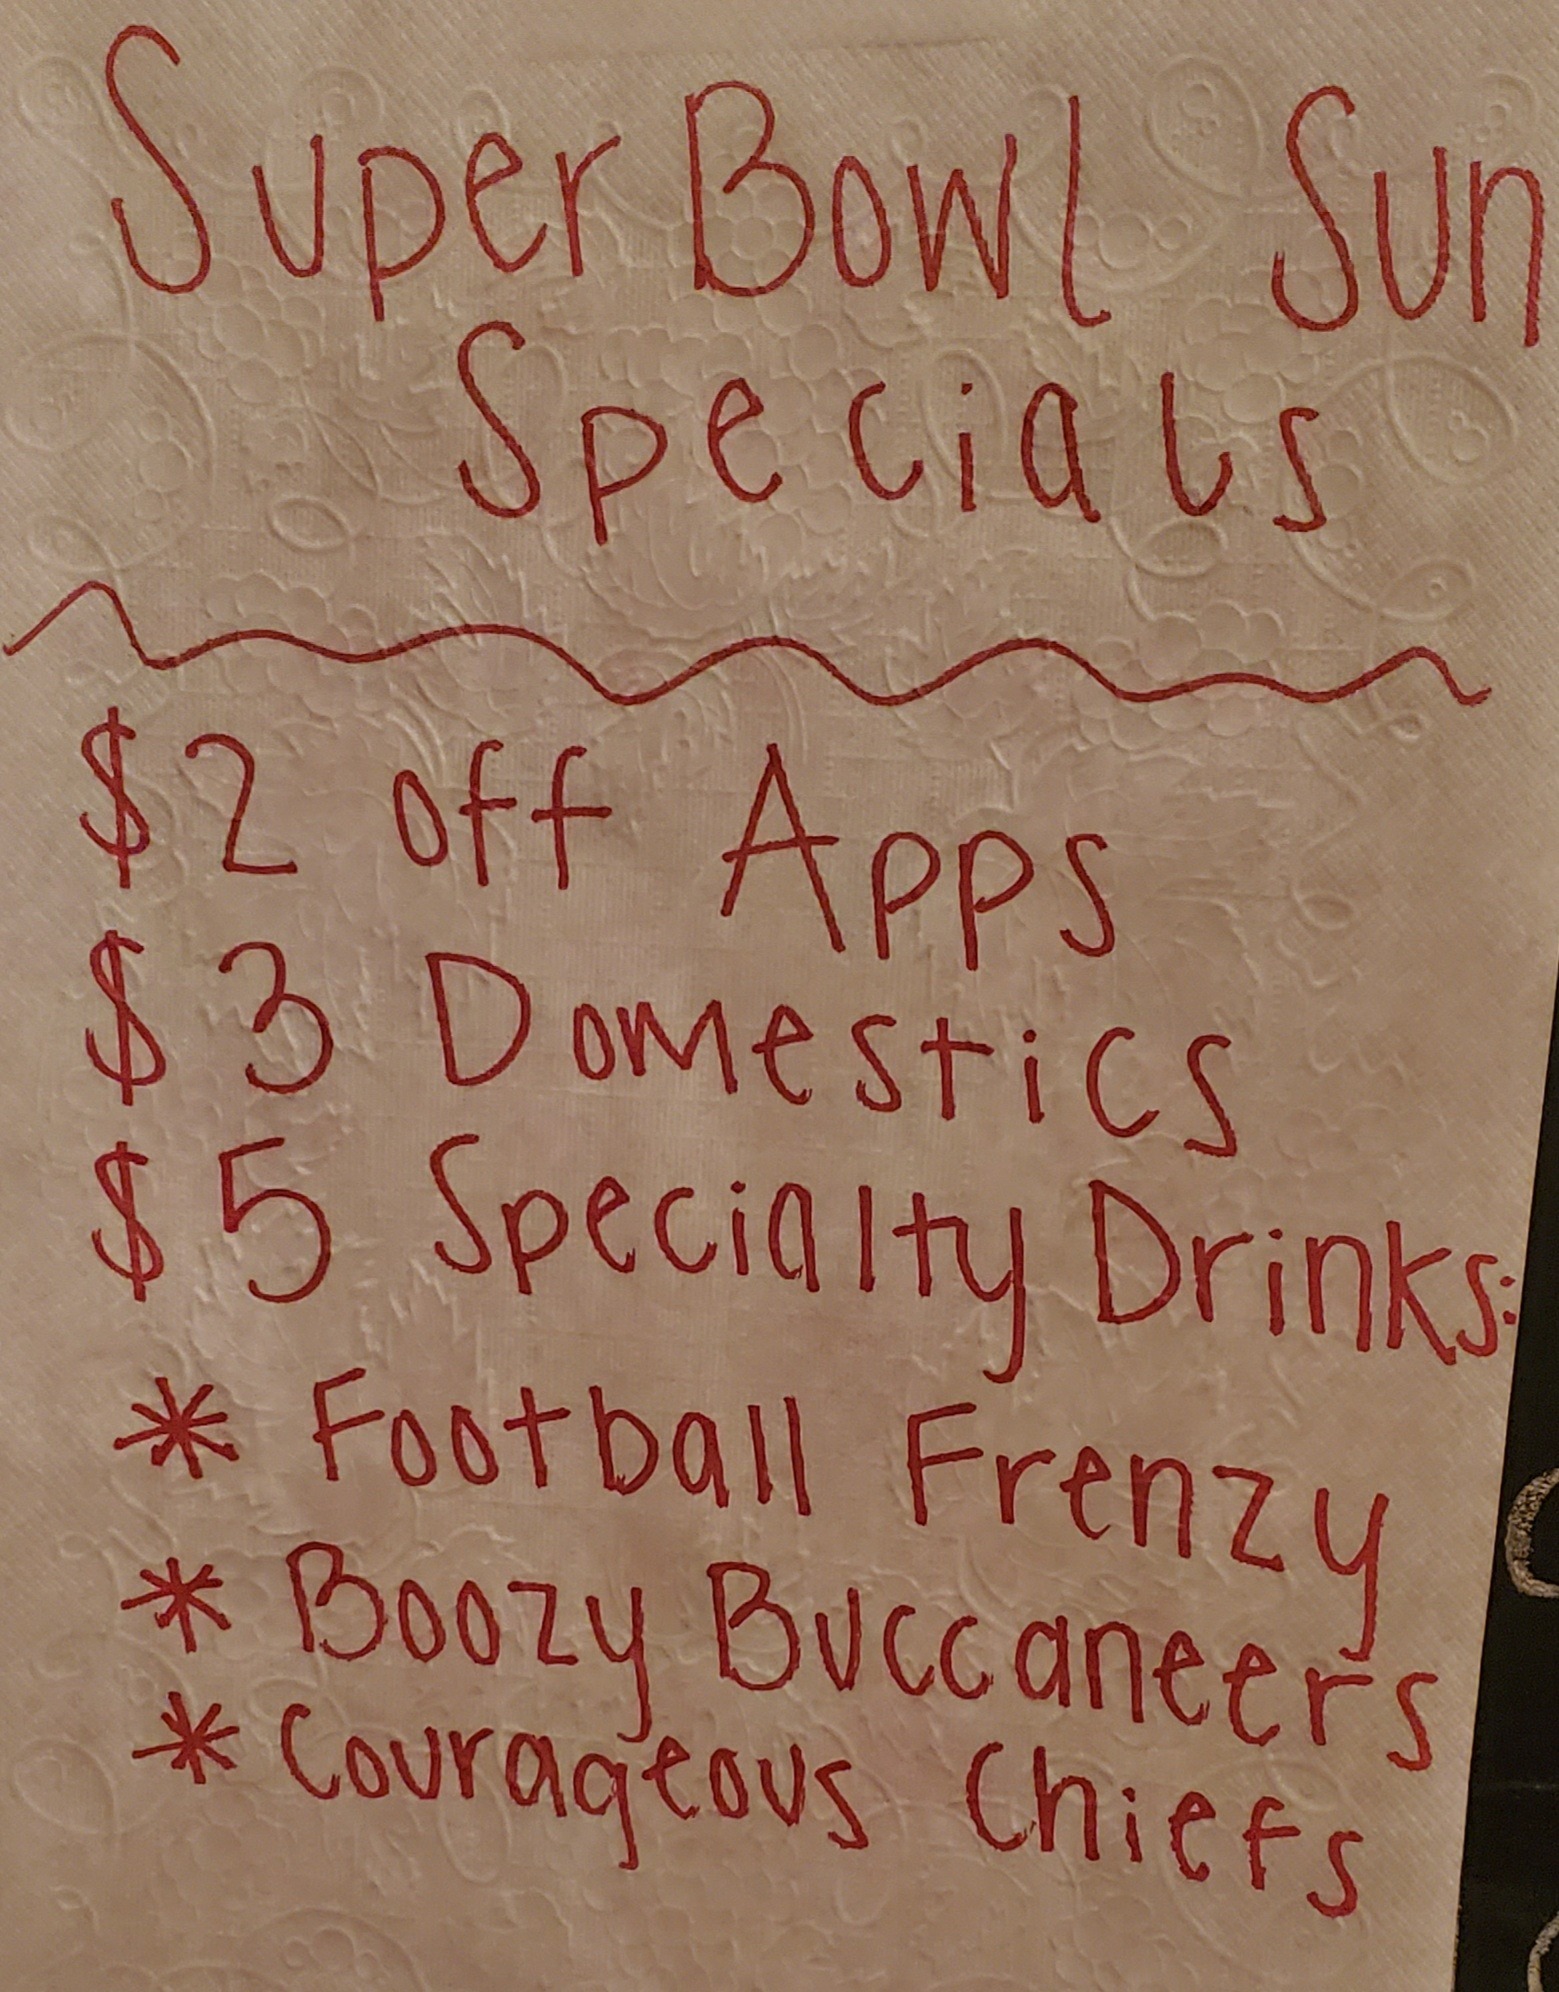 Super Bowl Sun
Specials
$2 off Apps
$3 Domestics
$5 Specialty Drinks:
* Football Frenzy
* Boozy Buccaneers
* Courageous Chiefs